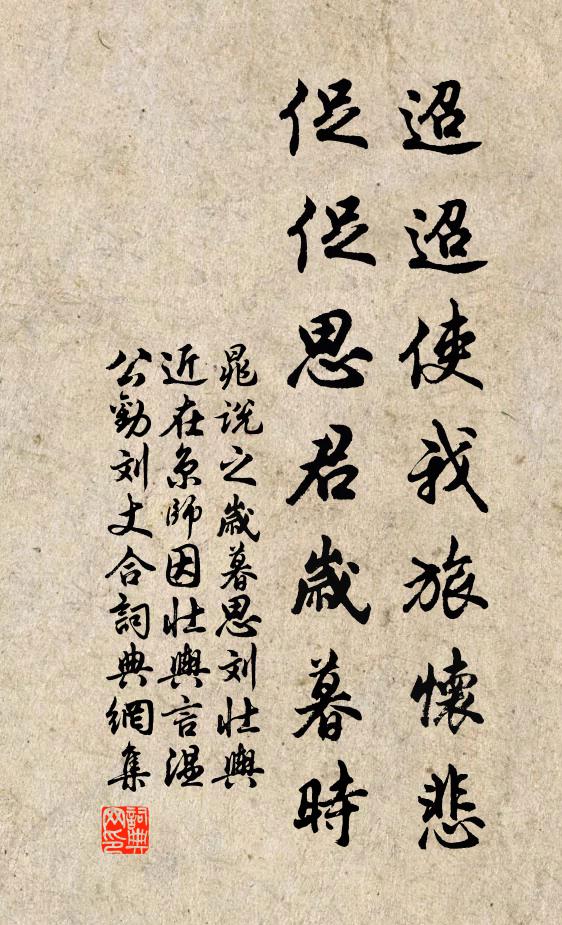 迢迢使我旅懷悲
促促思君歲暮時
晁说之歲暮思刘壮輿
近在京師因壮輿言温
公勸刘丈合詞典網集
詞典
网印